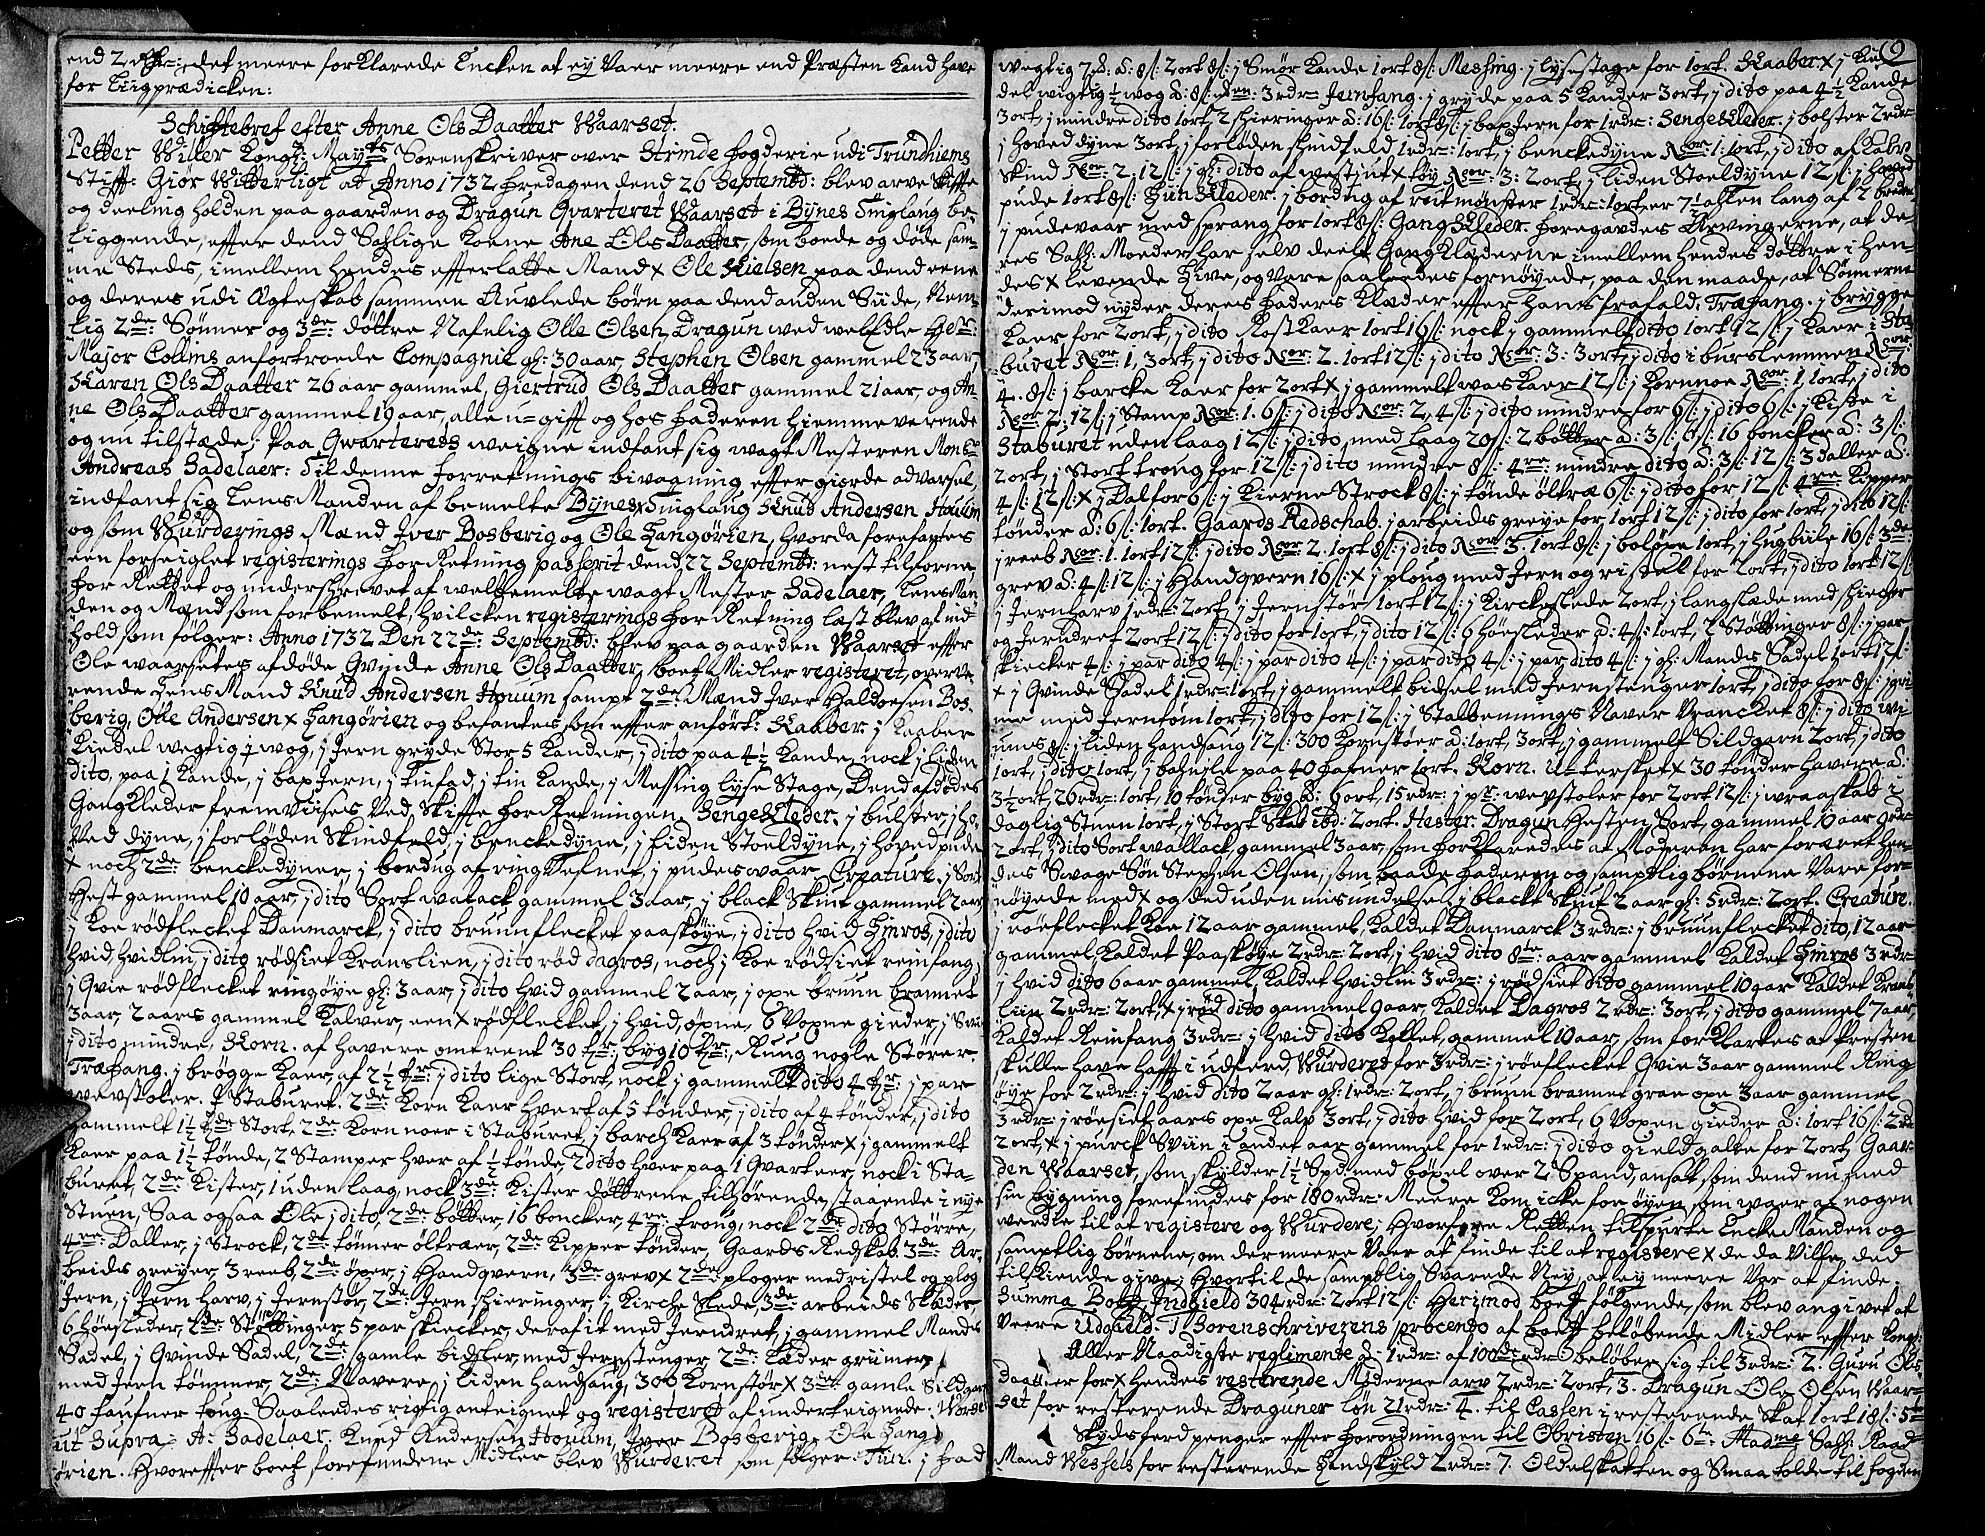 end 2 rdr:, det meere forklarede Encken at ey Vaer meere end Præsten Kand have
for Liigprædicken:
Schiftebref efter Anne Ols Daatter Waarset.
Petter Willer Kongl: Mayts Sorenskriver over Strinde fogderie udi Trundhiems
Stift: Giør Witterligt at Anno 1732 fredagen dend 26 Septembr: blev arve Skifte
og deeling holden paa gaarden og Dragun Qvarteret Waarset i Bynes Tinglaug be-
liggende, effter dend Sahlige Koene Ane Ols Daatter, som boede og døde sam-
me Steds, imellem hendes effterlatte Mand Ole Nielsen paa dend eene
og deres udi Ægteskab sammen Auvlede børn paa dend anden Siide, Nem-
lig 2de: Sønner og 3de: døttre Nafnlig Olle Olsen Dragun ved welEdle Hr:
Major Collins anfortroede Compagnie gl: 30 aar, Stephen Olsen gammel 23 aar
Karen Ols Daatter 26 aar gammel, Giertrud Ols Daatter gammel 21 aar, og An-
ne Ols Daatter gammel 19 aar, alle u-gift og hos faderen hiemme verende
og nu tilstæde; Paa Qvarterets weigne indfant sig wagt Mesteren Monsr
Andreas Sadelaer: Til denne forretnings bivaaning effter giorde advarsel,
indfant sig Lens Manden af bemelte Bynes Tinglaug Knud Andersen Houum
og som Wurderings Mænd Iver Bosberig og Ole Hangørien, hvorda forefantes
een forseiglet registerings forRetning passerit dend 22 Septembr: nest tilforne,
for Rettet og underschrevet af welbemelte wagt Mester Sadelaer, Lens Man-
den og Mænd som forbemelt, hvilcken registerings forRetning læst blev af ind
hold som følger: Anno 1732 Den 22de: Septembr: blev paa gaarden Waarset effter
Ole waarsetes afdøde Qvinde Anne Ols Daatter, boets Midler registeret, overve-
rende Lens Mand Knud Andersen Houum sampt 2de: Mænd Iver Haldoesen Bos-
berig, Olle Andersen Hangørien og befantes som effter anført: Kaaber j Kaaber
Kiedel wegtig j wog, j Jern gryde Stor 5 Kander, j dito paa 4½ Kande, nock j liden
dito, paa j Kande, j baxJern, j tinfad, j tin Kande, j Messing lyse Stage, Dend afdødes
GangKleder fremvises Ved Skifte forRetningen. SengeKleder. j bulster, j ho-
Ved dyne, j forloden Skindfeld, j benckedyne, j liden Stoeldyne, j hoved pude
noch 2de benckedyner, j bordug af ringVefnet, j pudesvaar, Creature. j Sort
Hest gammel 10 aar, j dito Sort walack gammel 3 aar, j black Skiut gammel 2 aar
j Koe rødflecket Danmarck, j dito bruunflecket paaskøye, j dito hvid Hinros, j dito
hvid, hvidlin, j dito rødsiet Kranslien, j dito rød dagros, noch j Koe rødsiet reinfang,
j Qvie rødflecket ringøye gl: 3 aar, j dito hvid gammel 2 aar, j ope bruun brannet
3 aar, 2 aars gammel Kalver, een rødflecket, j hvid, øpne, 6 Vopne gieder, j Sviin
j dito minder, Korn. af havere omtrent 30 tr: byg 10 tr:, Ruug nogle Størrer.
Træfang. j brøgge Kaer, af 2½ tr: j dito lige Stort, nock j gammelt dito 4 tr: j par
wevstoler. P Staburet. 2de: Korn Kaer hvert af 5 tønder, j dito af 4 tønder, j dito
gammelt 1½ tde Stort, 2de: Korn noer i Staburet, j barch Kaer af 3 tønder j gammelt
Kaer paa 1½ tønde, 2 Stamper hver af ½ tønde, 2 dito hver paa 1 Qvarteer, nock i Sta-
buret, 2de: Kister, 1 uden laag, nock 3de: Kister døttrene tilhørende, staaende i nye
Stuen, Saa ogsaa Ole j dito, 2de: bøtter, 16 boncker, 4re: troug, nock 2de dito Større,
4re: Daller, j Strock, 2de: tønner øltræer, 2de: Kipper tønder, Gaards Redskab 3de: Ar-
beids greyer, 3 reeb, 2de: øxer, j Handqvern, 3de: grev 2de ploger med ristel og plog
Jern, j Jern harv, j Jernstør, 2de: Jern schieringer, j Kirche Slede, 3de: arbeids Slæder,
6 høesleder, 2de: Støttinger, 5 par skiecker, deraf it med Jerndret, j gammel Mands
Sadel, j Qvinde Sadel, 2de: gamle bidsler, med Jernstenger, 2de: Læder griimer
med Jern tømmer, 2de: Navere, j liden handsaug, 300 Kornstør 3de: gamle Sildgar
40 faufner toug. Saaleedes rigtig antegnet og registeret af underteignede. Warset
ut Supra: A: Sadelaer, Knud Andersen Houum, Iver Bosberig, Ole Hang-
ørien. Hvoreffter boets forefundene Midler blev Wurderet som følger. Tin. j fad
9
wegtig 7 d: 8 s: 2 ort 8 s: j Smør Kande 1 ort 8 s: Messing. j lysestage for 1 ort. Kaaber j Kie-
del wigtig ½ wog 3 rdr: Jernfang. j gryde paa 5 Kander 3 ort, j dito paa 4½ Kande
3 ort, j mindre dito 1 ort 2 schieringer à: 16 s: 1 ort 8 s: j baxJern for 1 rdr: SengeKleder. j bolster 2 rdr
j hoved dyne 3 ort, j forloden skindfeld 1 rdr: 1 ort, j benckedyne Nor: 1: 1 ort, j dito af Kalv
skind Nor: 2: 12 s: j gl: dito af westjut tøy Nor: 3: 2 ort, j liden Stoeldyne 12 s: j hoved
pude 1 ort 8 s: HiinKleder. j bordug af reitmønster 1 rdr: 1 ort, er 7½ allen lang af 2 breder
j pudevaar med sprang for 1 ort 8 s: GangKleder. foregavdes Arvingerne, at de-
res Sahl: Moeder har selv deelt GangKlæderne imellem hendes døttre i hen-
des levende Live, og Vare saaleedes fornøyede, paa den maade, at Sønnerne
derimod nyder deres faders Klæder effter hans frafald. Træfang. j brygge
Kaer for 2 ort, j dito RostKaer 1 ort 16 s: nock j gammelt dito 1 ort 12 s: j Kaer i Sta-
buret Nor: 1, 3 ort, j dito Nor: 2. 1 ort 12 s: j dito Nor: 3: 3 ort, j dito i burslemmen Nor:
4. 8 s: j barcke Kaer for 2 ort j gammelt was Kaer 12 s: j Kornnoe Nor: 1, 1 ort, j dito
Nor: 2: 12 s: j Stamp Nor: 1. 6 s: j dito Nor: 2, 4 s: j dito mindre for 6 s: j dito 6 s: j Kiste i
Staburet uden laag 12 s: j dito, med laag 20 s: 2 bøtter à: 3 s: 6 s: 16 boncker à: 3 s:
2 ort, j Stort troug for 12 s: j dito mindre 8 s: 4re: mindre dito à: 3 s: 12 s: 3 daller à:
4 s: 12 s: j Dal for 6 s: j Kierne Strock 8 s: j tønde øltræ 6 s: j dito for 12 s: 4re Kipper
tønder à: 6 s: 1 ort. Gaards Redschab. j arbeids greye for 1 ort 12 s: j dito for 1 ort, j dito 12 s:
j reeb Nor: 1. 1 ort 12 s: j dito Nor: 2. 1 ort 8 s: j dito Nor 3. 1 ort 8 s: j boløxe 1 ort, j hugbiile 16 s: 3de:
grev à: 4 s: 12 s: j Handqvern 16 s: j ploug med Jern og ristel for 2 ort, j dito 1 ort 12 s:
j Jernharv 1 rdr: 2 ort, j Jernstør 1 ort 12 s: j Kirckeslede 2 ort, j langslæde med skiecker
og Jerndret 2 ort 12 s: j dito for 1 ort, j dito 12 s: 6 høesleder à: 4 s: 1 ort, 2 Støttinger 8 s: j par
skiecker 4 s: j par dito 4 s: j par dito 4 s: j par dito 4 s: j par dito 4 s: j gl: Mands Sadel 1 ort 12 s:
j Qvinde Sadel 1 rdr: 1 ort, j gammelt bidsel med Jernstenger 1 ort, j dito for 8 s: j gri-
me med Jerntøm 1 ort, j dito for 12 s: j Stalbemnings Naver Vrancket 8 s: j dito
8 s: j liden handsaug 12 s: 300 Kornstøer à: 1 ort, 3 ort, j gammelt Sildgarn 2 ort, j dito
1 ort, j dito 1 ort, j bahusle paa 40 fafner 1 ort. Korn. U-tersket 30 tønder havere à:
3½ ort, 26 rdr: 1 ort, 10 tønder byg à: 6 ort, 15 rdr: j pr: wevstoler for 2 ort 12 s: j wraaskab i
daglig Stuen 1 ort, j Stort Skab ibd: 2 ort. Hester. Dragun Hesten, Sort, gammel 10 aar 9 rdr
2 ort, j dito Sort wallack, gammel 3 aar, som forklaredes at Moderen har foræret hen-
des Svage Søn Stephen Olsen, som baade faderen og samptlig børnene Vare for-
nøyede med og ded uden misundelse, j blackt Skiut 2 aar gl: 5 rdr: 2 ort. Creature.
j røeflecket Koe 12 aar gammel, kaldet Danmarck 3 rdr: j bruunflecket dito, 12 aar
gammel, kaldet Paaskøye 2 rdr: 2 ort, j hvid dito 8te: aar gammel kaldet Hinros 3 rdr
j hvid dito 6 aar gammel, kaldet hvidlin 3 rdr: j rødsiet dito gammel 10 aar Kaldet Krans-
liin 2 rdr: 2 ort, j rød dito gammel 9 aar, Kaldet Dagros 2 rdr: 3 ort, j dito gammel 7 aar,
Kaldet Reinfang 3 rdr: j hvid dito Kollet, gammel 10 aar, som forklartes at Presten
skulle have haft i udferd, Wurderet for 3 rdr: j røeflecket Qvie 3 aar gammel Ring
øye for 2 rdr: j hvid dito 2 aar gl: 1 rdr: 2 ort, j bruun brannet graa oxe 3 aar gammel
3 rdr: j røesiet aars oxe Kalv 3 ort, j dito hvid for 2 ort, 6 Voxen gieder à: 1 ort 16 s: 2 rd
2 ort, j purck Sviin i andet aar gammel for 1 rdr: j dito gieldgalte for 2 ort, Gaar-
den Waarset, som skylder 1½ Spd: med bøxel over 2 Spand, ansat som dend nu med
sin bygning forefindes for 180 rdr: Meere Kom icke for øyen, som waer af nogen
werdie til at registere og Wurdere; Hvorfore Retten tilspurte Encke Manden og
samptlig børnene, om der meere Vaer at finde til at registere de da Ville ded
tilkiende give; Hvortil de samptlig Svarede Ney, at ey meere Var at finde.
Summa Boets Indgield 304 rdr: 2 ort 12 s: Herimod boets følgende, som blev angivet at
Veere Udgield. 1 Sorenschriverens procento af boets beløbende Midler effter Kongl:
Aller Naadigste reglimente à: 1 rdr: af 100de rdr: beløber sig til 3 rdr: 2. Guru Ols
daatter for Hendes resterende Mødrene arv 2 rdr: 2 ort, 3. Dragun Ole Olsen Waar-
set for resterende Draguner løn 21 rdr: 4. til Cassen i resterende Skat 1 ort 18 s: 5te
Skydsferdpenger effter forordningen til Obristen 16 s: 6te: Madme Sahl: Raad-
Mand Wessels for resterende Landskyld 2 rdr: 7. Oldelskatten og Smaa tolde til fogden